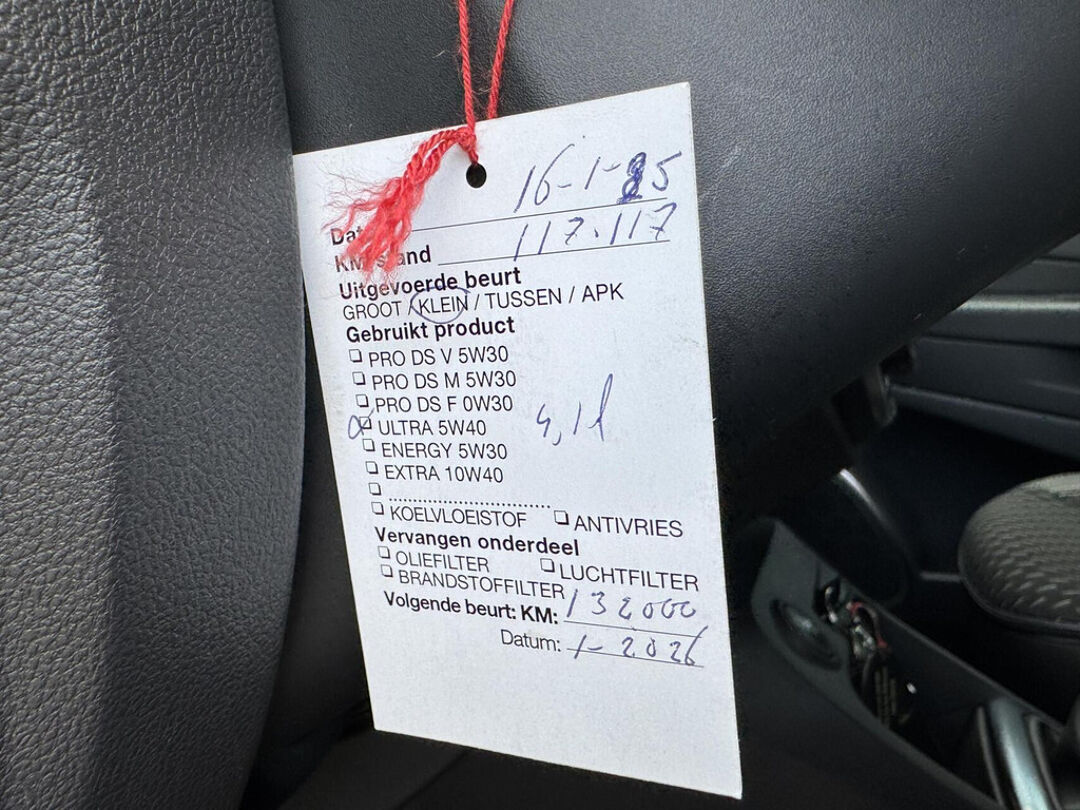 Datum 16-1-25
KM-stand 117.117
Uitgevoerde beurt
GROOT / KLEIN / TUSSEN / APK
Gebruikt product
PRO DS V 5W30
PRO DS M 5W30
PRO DS F 0W30
ULTRA 5W40 4,1l
ENERGY 5W30
EXTRA 10W40
..............................
KOELVLOEISTOF ANTIVRIES
Vervangen onderdeel
OLIEFILTER LUCHTFILTER
BRANDSTOFFILTER
Volgende beurt: KM: 132000
Datum: 1-2026